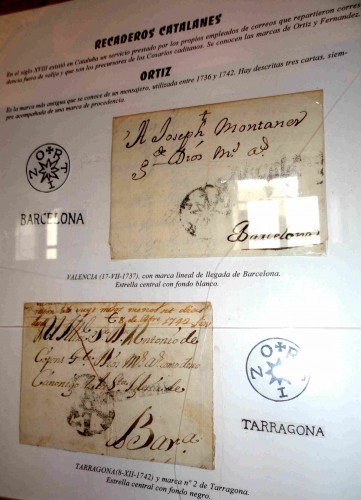 RECADEROS CATALANES
En el siglo XVIII existió en Cataluña un servicio prestado por los propios empleados de correos que repartieron corres
dencia fuera de valija y que son los precursores de los Cosarios caditanos. Se conocen las marcas de Ortiz y Fernández.
ORTIZ
Es la marca más antigua que se conoce de un mensajero, utilizada entre 1736 y 1742. Hay descritas tres cartas, siem-
pre acompañada de una marca de procedencia.
ORTIZ
BARCELONA
A Joseph Montaner
gde Dios ms as
Barcelona
VALENCIA (17-VII-1737), con marca lineal de llegada de Barcelona.
Estrella central con fondo blanco.
Antonio de
Dios como
Canonigo de la Sta
Bara
ORTIZ
TARRAGONA
TARRAGONA(8-XII-1742) y marca nº 2 de Tarragona.
Estrella central con fondo negro.